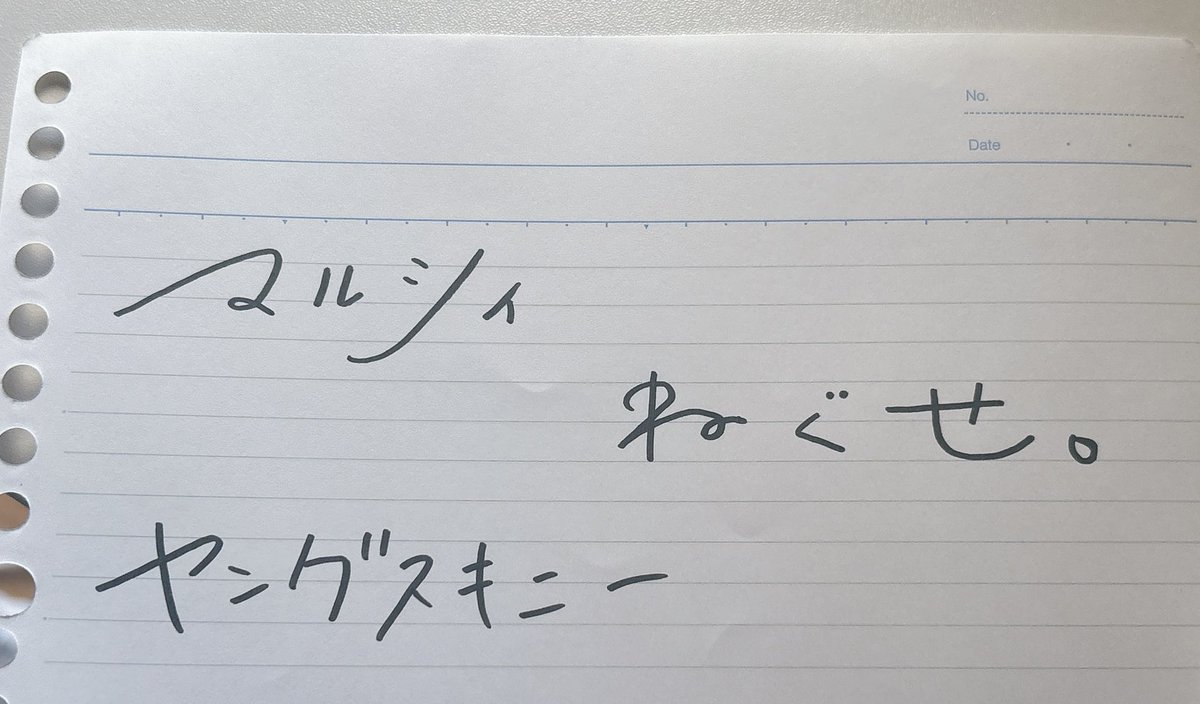 No.
Date
マルシィ
ねぐせ。
ヤングスキニー